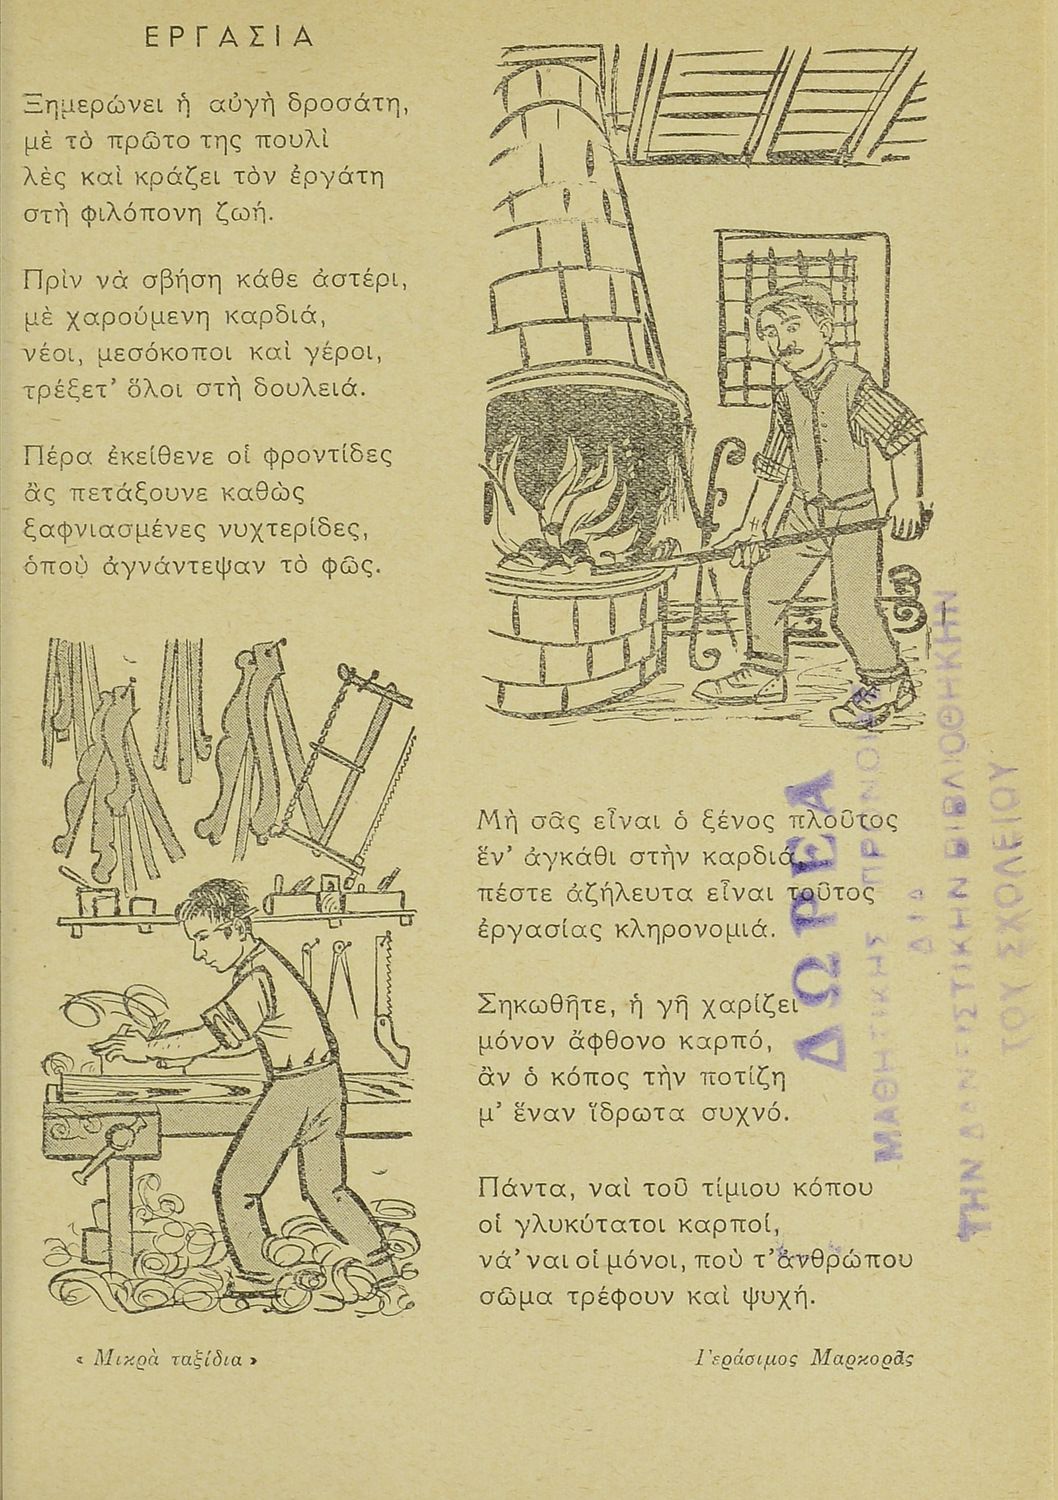 ΕΡΓΑΣΙΑ
Ξημερώνει ἡ αὐγὴ δροσάτη,
μὲ τὸ πρῶτο της πουλὶ
λὲς καὶ κράζει τὸν ἐργάτη
στὴ φιλόπονη ζωή.
Πρὶν νὰ σβήση κάθε ἀστέρι,
μὲ χαρούμενη καρδιά,
νέοι, μεσόκοποι καὶ γέροι,
τρέξετ’ ὅλοι στὴ δουλειά.
Πέρα ἐκείθενε οἱ φροντίδες
ἂς πετάξουνε καθὼς
ξαφνιασμένες νυχτερίδες,
ὁποὺ ἀγνάντεψαν τὸ φῶς.
Μὴ σᾶς εἶναι ὁ ξένος πλοῦτος
ἕν’ ἀγκάθι στὴν καρδιά,
πέστε ἀζήλευτα εἶναι τοῦτος
ἐργασίας κληρονομιά.
Σηκωθῆτε, ἡ γῆ χαρίζει
μόνον ἄφθονο καρπό,
ἂν ὁ κόπος τὴν ποτίζη
μ’ ἕναν ἵδρωτα συχνό.
Πάντα, ναὶ τοῦ τίμιου κόπου
οἱ γλυκύτατοι καρποί,
νά’ ναι οἱ μόνοι, ποὺ τ’ ἀνθρώπου
σῶμα τρέφουν καὶ ψυχή.
« Μικρὰ ταξίδια »
Γεράσιμος Μαρκορᾶς
ΔΩΡΕΑ
ΜΑΘΗΤΙΚΗΣ ΠΡΟΝΟΙΑΣ
ΔΙΑ
ΤΗΝ ΔΑΝΕΙΣΤΙΚΗΝ ΒΙΒΛΙΟΘΗΚΗΝ
ΤΟΥ ΣΧΟΛΕΙΟΥ